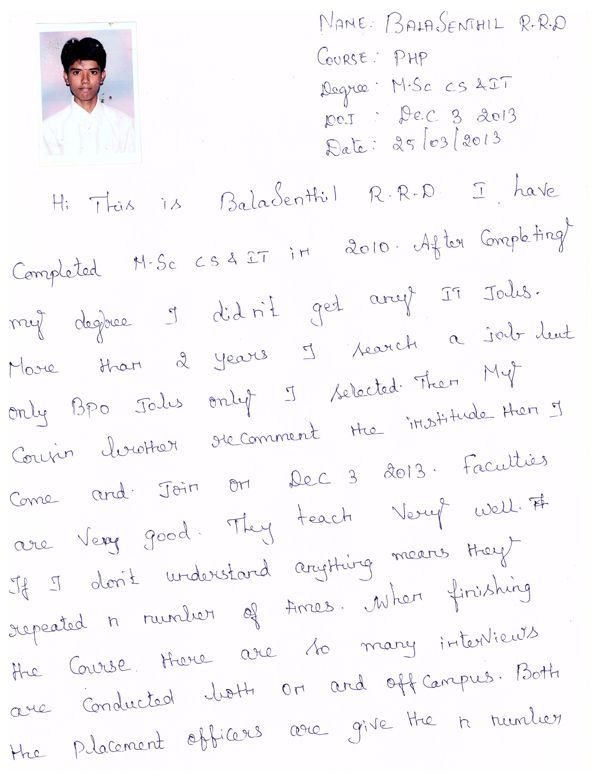 NAME: BALASENTHIL R.R.D
COURSE: PHP
Degree: M.Sc CS & IT
D.O.J : Dec 3 2013
Date: 25/03/2013
Hi This is BalaSenthil R.R.D. I have
Completed M.Sc CS & IT in 2010. After Completing
my degree I didn't get any IT Jobs.
More than 2 years I search a job but
only BPO Jobs only I selected. Then My
Cousin brother recomment the institude then I
Come and Join on Dec 3 2013. Faculties
are Very good. They teach Very well.
If I don't understand anything means they
repeated n number of times. When finishing
the Course. there are so many interviews
are conducted both on and off campus. Both
the Placement officers are give the n number